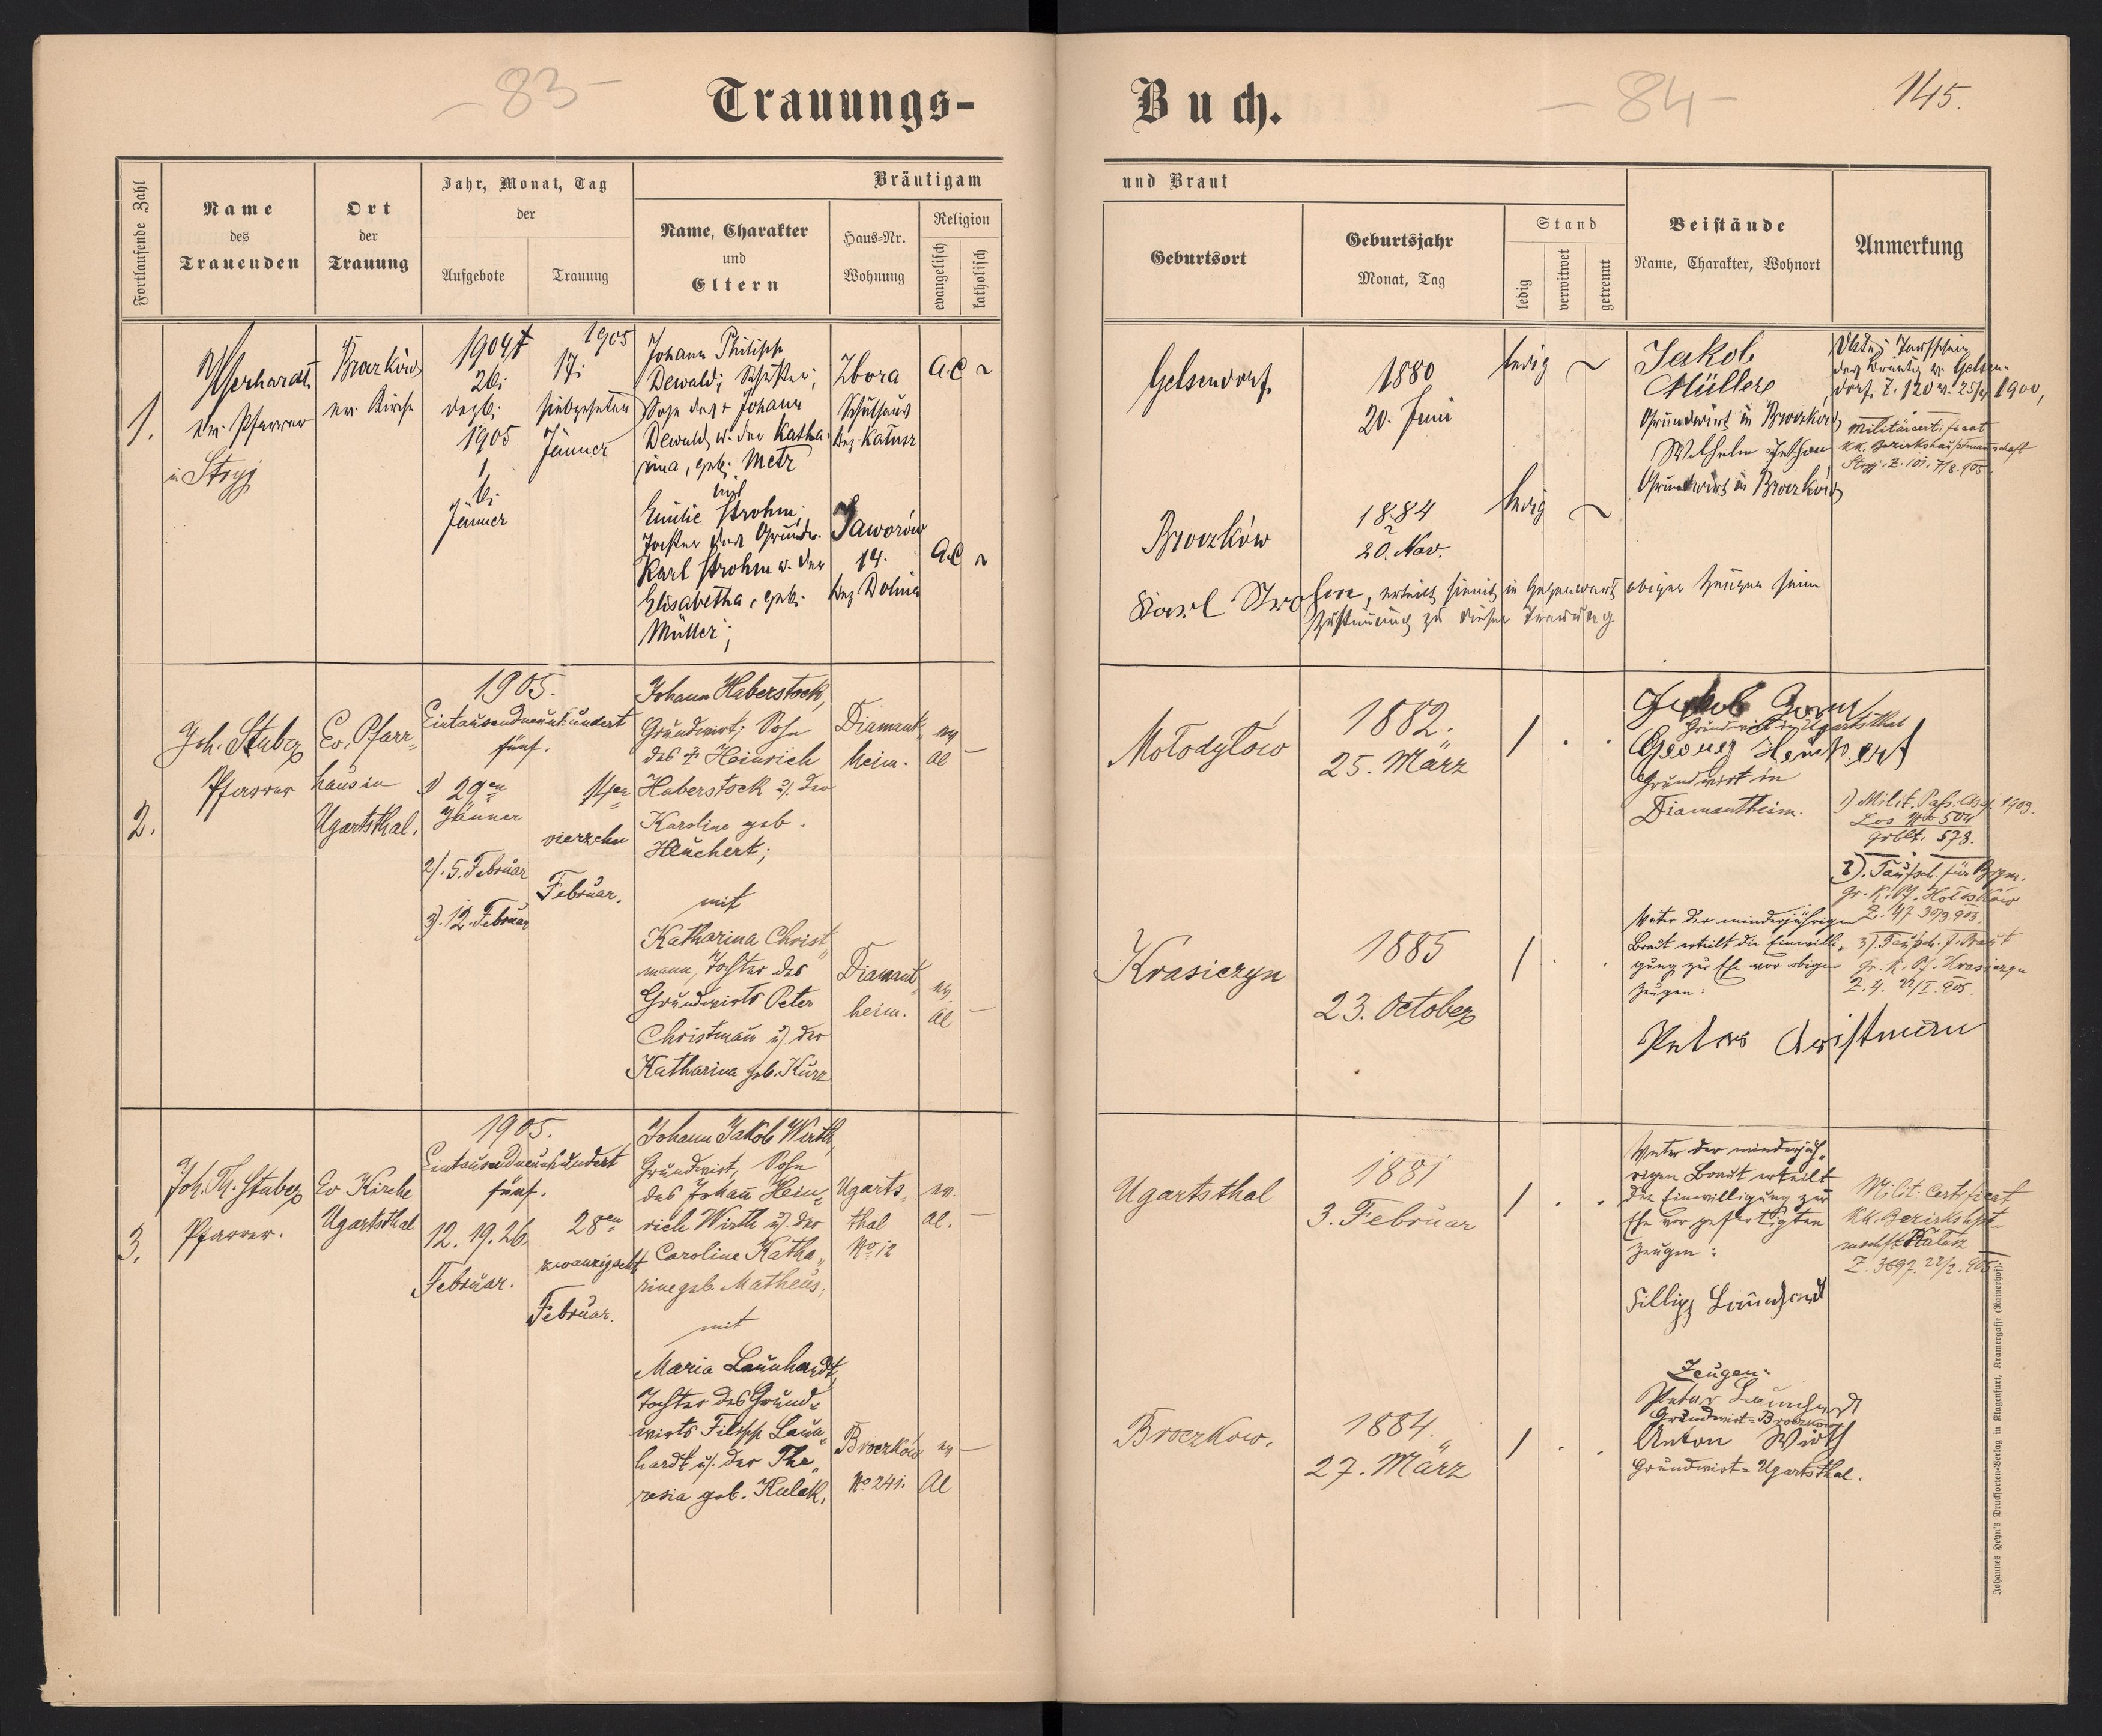 - 83 -
Trauungs-
Buch.
- 84 -
145.
Fortlaufende Zahl
Name
des
Trauenden
Ort
der
Trauung
Jahr, Monat, Tag
der
Aufgebote
Trauung
Bräutigam
Name, Charakter
und
Eltern
Haus-Nr.
Wohnung
Religion
evangelisch
katholisch
und Braut
Geburtsort
Geburtsjahr
Monat, Tag
Stand
ledig
verwitwet
getrennt
Beistände
Name, Charakter, Wohnort
Anmerkung
1.
ev. Pfarrer
in Stryj
Broczków
ev. Kirche
1904
26.
dezb.
1905
1.
6.
Jänner
1905
17.
siebzehnten
Jänner
Johann Philipp
Dewald;
Sohn des † Johann
Dewald u. der Katha-
rina, geb. Metz
mit
Emilie Strohm;
Tochter des Grundw.
Karl Strohm u. der
Elisabetha, geb.
Müller;
Zbora
Schulhaus
Bez. Kałusz
A.C
Jaworów
14.
Bez Dolina
A.C
Gelsendorf
1880
20. Juni
ledig
Jakob
Müller
Grundwirt in Broczków
Wilhelm
Grundwirt in Broczków
Taufschein
des Bräutig. v. Gelsen-
dorf, Z. 120 v. 1900,
Militärcertificat
k.k. Bezirkshauptmannschaft
Stryj. Z. 905
Broczków
1884
20. Nov.
ledig
Karl Strohm, erteilt hiemit in Gegenwart obiger Zeugen seine
Zustimmung zu dieser Trauung
2.
Joh. Stuber
Pfarrer
Ev. Pfarr-
haus in
Ugartsthal.
1905.
Eintausendneunhundert
fünf.
1) 29en
Jänner
2). 5. Februar
3). 12. Februar
14en
vierzehn
Februar.
Johann Haberstock,
Grundwirt; Sohn
des † Heinrich
Haberstock u. der
Karoline geb.
Heuchert;
mit
Katharina Christ-
mann, Tochter des
Grundwirts Peter
Christman u. der
Katharina geb. Kurz
Diamant-
heim.
ev
Al
—
Diamant-
heim.
ev.
Al
—
Mołodyłow
1882.
25. März
Jakob
Grundwirt in Ugartsthal
Georg Heuchert
Grundwirt in
Diamantheim.
1) Milit. Paß. 1903.
Los No 504
578.
2). Taufsch. für Bräm.
gr. k. Pf. Hołosków
Z. 47 903.
Krasiczyn
1885
23. October
Vater der minderjährigen
Braut erteilt die Einwilli-
gung zur Ehe vor obigen
Zeugen:
3). Taufsch. f. Braut
gr. k. Pf. Krasiczyn
Z. 4. 22/I. 905.
Peter Cristmann
3.
Joh. Th. Stuber
Pfarrer.
Ev Kirche
Ugartsthal
1905.
Eintausendneunhundert
fünf.
12. 19. 26.
Februar.
28en
zwanzigacht
Februar.
Johann Jakob Wirth,
Grundwirt, Sohn
des Johan Hein-
rich Wirth u. der
Caroline Katha-
rine geb. Matheus;
mit
Maria Launhardt,
Tochter des Grund-
wirts Filipp Laun-
hardt u. der The-
resia geb. Kulak.
Ugarts-
thal
No 12
ev.
Al.
—
Broczków
No 241.
ev
Al
—
Ugartsthal
1881
3. Februar
Vater der minderjäh-
rigen Braut erteilt
die Einwilligung zur
Ehe vor gefertigten
Zeugen:
Fillipp Launhardt
Milit. Certificat
k.k. Bezirkshpt-
mschft Kalusz
Z. 3697. 22/2. 905
Broczkow.
1884.
27. März
Zeugen:
Peter Launhardt
Grundwirt = Broczkow
Anton Wirth
Grundwirt = Ugartsthal.
Johannes Heyn's Drucksorten-Verlag in Klagenfurt, Kramergasse (Rainerhof).